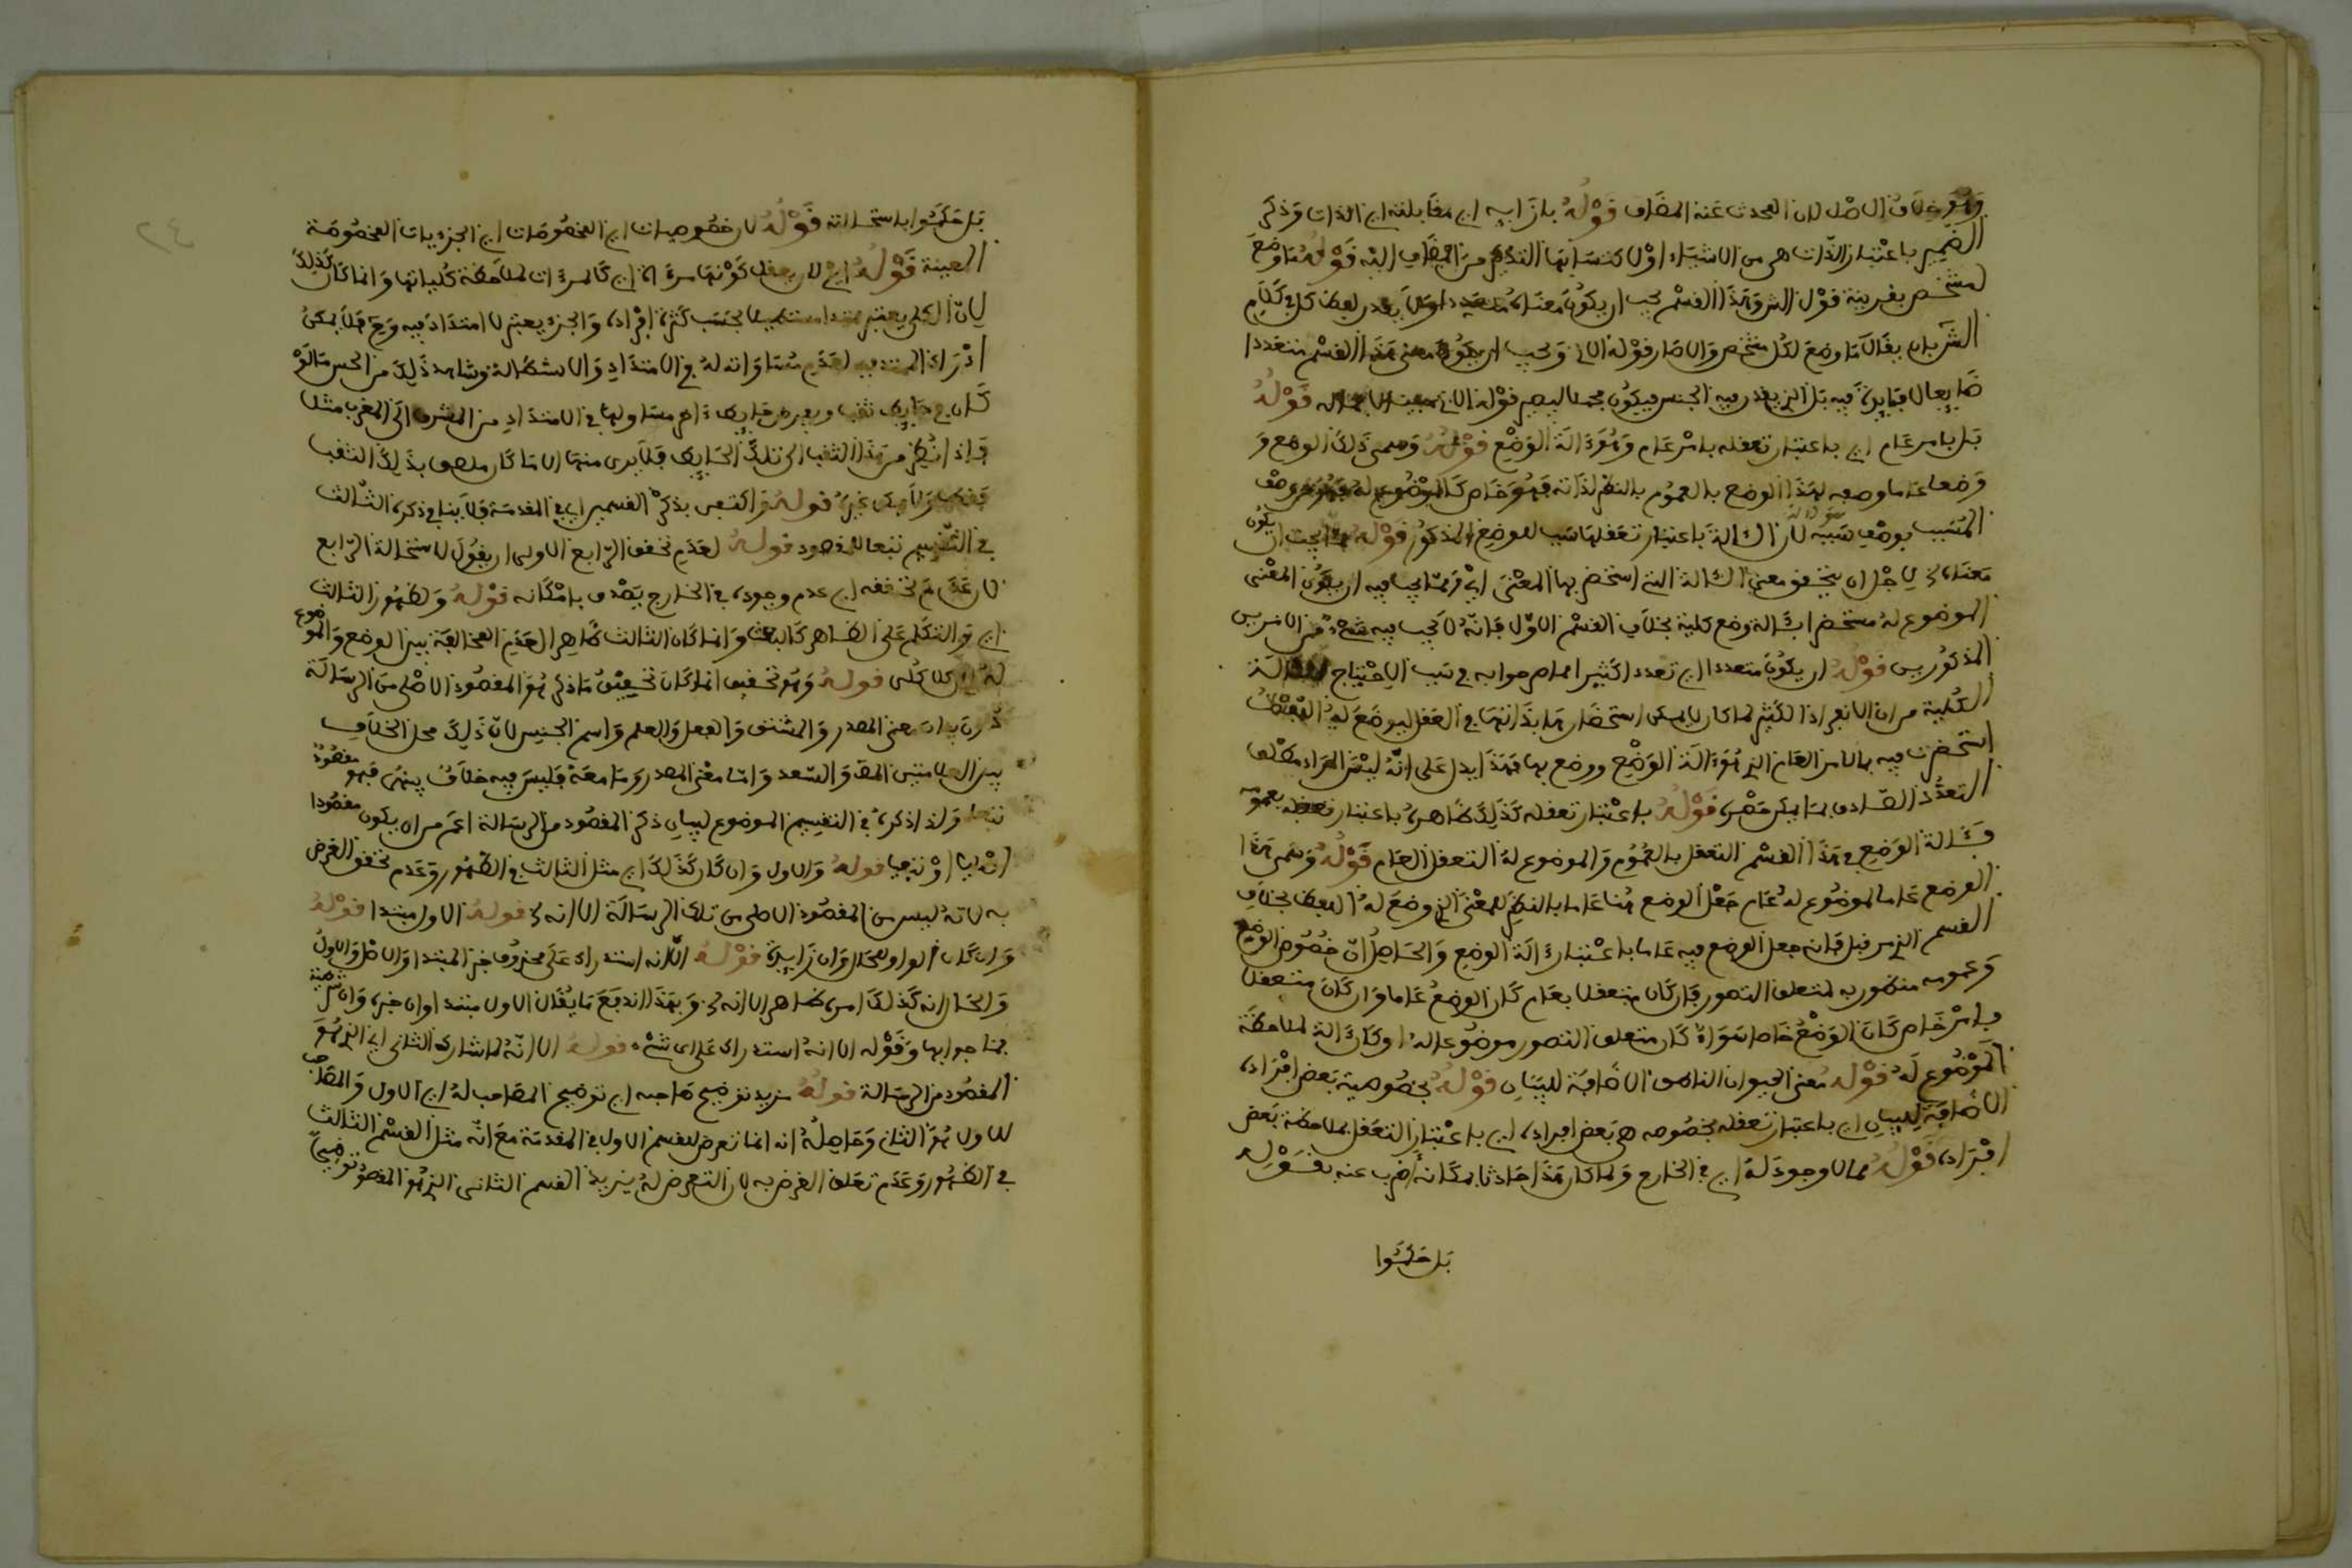 وهو خلاف الاصل لان المحدث عنه المضاف قوله بازايه اي مقابلته اي الذات وذكر
الضمير باعتبار ان الذات هي من الاشياء او لاكتسابها التذكير من المضاف اليه قوله ما وضع
لمشخص بقرينة قول الش وهذا القسم يجب ان يكون معناه متعددا ولا يقدر لفظ كل في كلام
الش بان يقال ما وضع لكل مشخص والا صار قوله الاتي ويجب ان يكون معنى هذا القسم متعددا
ضايعا لا فايدة فيه بل الذي يقدر فيه الجنس فيكون مجملا ليصير قوله الاتي
بل بامر عام اي باعتبار تعقله بامر عام وهو ءالة الوضع قوله وسمي ذلك الوضع و
وضعا عاما وصف لهذا الوضع بالعموم بالنظر لذاته فهو خاص كالموضوع له فهو من وصف
المسبب بوصف سببه لان ءالة باعتبار تعقلها سبب للوضع المذكور قوله يجب ان يكون
معناه لاجل ان يتحقق معنى الءالة التي استحضر بها المعنى اي ومما يجب فيه ان يكون المعنى
الموضوع له مستحضرا بءالة وضع كلية بخلاف القسم الاول فانه لا يجب فيه شيء من الامرين
المذكورين قوله ان يكون متعددا اي تعددا كثيرا اما صوابه في سبب الاحتياج للءالة
الكلية من ان الافراد الكثيرة لما كان لا يمكن استحضارها بذاتها في العقل ليوضع لها اللفظ
استحضرت فيه بالامر العام الذي هو ءالة الوضع ووضع بها فهذا يدل على انه ليس المراد مطلق
التعدد الصادق بما يمكن حصره قوله باعتبار تعقله كذلك ظاهره باعتبار تعقله بعمومه
وءالة الوضع في هذا القسم التعقل بالعموم والموضوع له التعقل العام قوله وسمي هذا
الوضع عاما لموضوع له عام جعل الوضع هنا عاما بالنظر للمعنى الذي وضع له اللفظ بخلاف
القسم الذي من قبل فانه جعل الوضع فيه عاما باعتبار ءالة الوضع والحاصل ان خصوص الوضع
وعمومه منظور به لمتعلق التصور فان كان متعقلا بعام كان الوضع عاما وان كان متعقلا
بامر خاص كان الوضع خاصا سواء كان متعلق التصور موضوعا له او كان ءالة لملاحظة
الموضوع له قوله معنى الحيوان الناطق الاضافة للبيان قوله بخصوصية بعض افراده
الاضافة للبيان اي باعتبار تعقله بخصوصه هي بعض افراده اي باعتبار التعقل بملاحظة بعض
افراده قوله مما لا وجود له اي في الخارج ولما كان هذا صادقا بامكانه اضرب عنه بقوله
بل حكموا
٢٤
بل حكموا باستحالته قوله لان خصوصيات اي المخصوصات اي الجزءيات المخصوصة
المعينة قوله اي لا يعقل كونها مرءاة اي كالمرءات لملاحظة كلياتها وانما كان كذلك
لان الكلي يعتبر ممتدا مستطيلا بحسب كثرة افراده والجزءي يعتبر لا امتداد فيه وح فلا يمكن
ادراك الممتد فيه لعدم مساواته له في الامتداد والاستطالة وشاهد ذلك من الحس ما لو
كان في حايط ثقب وبعرض حايط ءاخر مساو لها في الامتداد من المشرق الى المغرب مثلا
فاذا نظر من هذا الثقب الى تلك الحايط فلا يرى منها الا ما كان ملصقا بذلك الثقب
فقط ولا يمكن غيره قوله واكتفى بذكر القسمين اي في المقدمة فلا ينافي ذكره الثالث
في التقسيم تبعا للمقصود قوله لعدم تحقق الرابع الاولى ان يقول لاستحالة الرابع
لان عدم تحققه اي عدم وجوده في الخارج يصدق بامكانه قوله ولظهور الثالث
اي والتكلم على الظاهر كالعبث وانما كان الثالث ظاهرا لعدم المخالفة بين الوضع والموضوع
له اي كلا كلي قوله وهو تحقيق انما كان تحقيق ما ذكر هو المقصود الاصلي من الرسالة
دون بيان معنى المصدر والمشتق والفعل والعلم واسم الجنس لان ذلك محل الخلاف
بين العلامتين العضد والسعد واما معنى المصدر وما معه فليس فيه خلاف بينهما فهو مقصود
تبعا ولذا ذكره في التقسيم الموضوع لبيان ذكر المقصود من الرسالة اعم من ان يكون مقصودا
اصليا او تبعيا قوله والاول وان كان كذلك اي مثل الثالث في الظهور وعدم تحقق الغرض
به لانه ليس من المقصود الاصلي من تلك الرسالة الا انه الخ قوله الاول مبتدا قوله
وان كان الواو للحال وان زايدة قوله الا انه استدراك على محذوف خبر المبتدا والاصل والاول
والحال انه كذلك امره ظاهر الا انه الخ وبهذا اندفع ما يقال ان الاول مبتدا وان خبره وان شرطية
فما جوابها وقوله الا انه استدراك على اي شيء قوله الا انه لما شارك الثاني اي الذي هو
المقصود من الرسالة قوله يزيد توضيح صاحبه اي توضيح المصاحب له اي الاول والمصاحب
للاول هو الثاني وحاصله انه انما تعرض للقسم الاول في المقدمة مع انه مثل القسم الثالث
في الظهور وعدم تعلق الغرض به لان التعرض له يزيد القسم الثاني الذي هو المقصود توضيحا